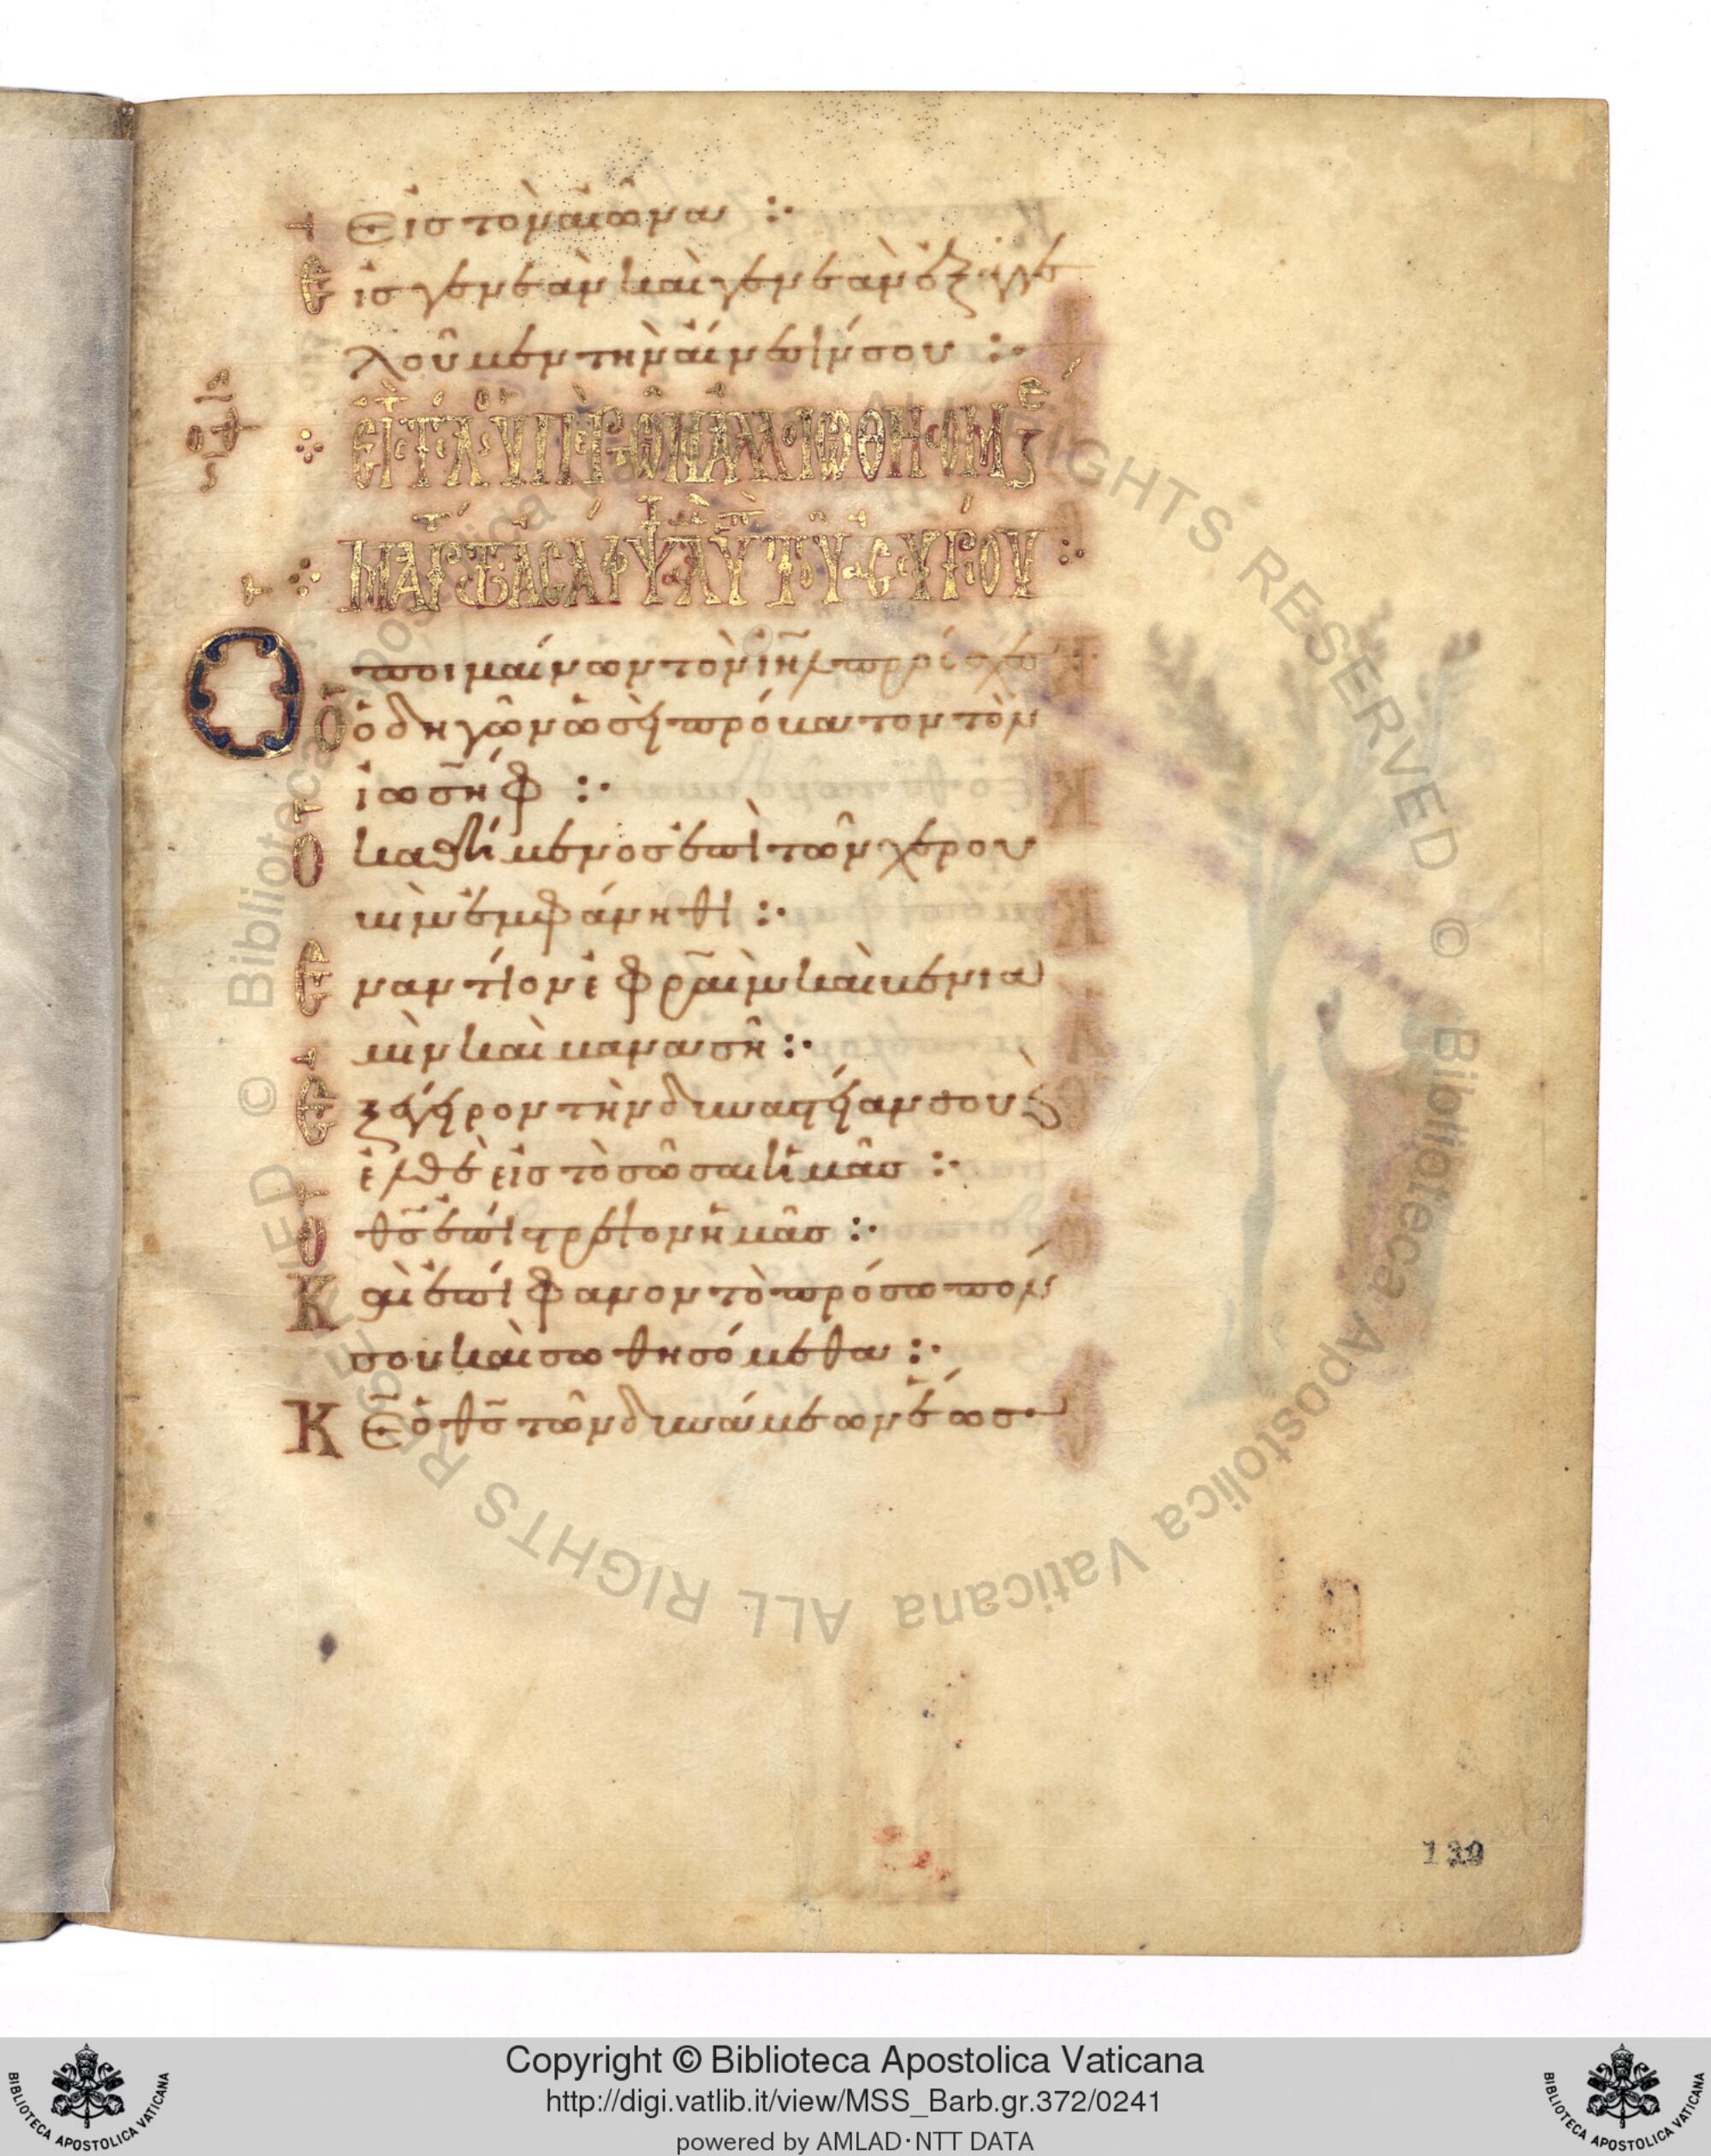 εἰς τὸν αἰῶνα :·
Εἰς γενεὰν καὶ γενεὰν ἐξαγγε
λοῦμεν τὴν αἴνεσίν σου :·
ΟΘ
Ὁ ποιμαίνων τὸν ιηλ πρόσχες :
Ὁ ὁδηγῶν ὡσεὶ πρόβατον τὸν
ἰωσήφ :·
Ὁ καθήμενος ἐπὶ τῶν χερου
βὶμ ἐμφάνηθι :·
Ἐναντίον ἐφραὶμ καὶ βενια
μὶν καὶ μανασῆ :·
Ἐξέγειρον τὴν δυναστείαν σου καὶ
ἐλθὲ εἰς τὸ σῶσαι ἡμᾶς :·
Ὁ θς ἐπίστρεψον ἡμᾶς :·
Καὶ ἐπίφανον τὸ πρόσωπόν
σου καὶ σωθησόμεθα :·
Κε ὁ θς τῶν δυνάμεων ἕως
139
Copyright © Biblioteca Apostolica Vaticana
http://digi.vatlib.it/view/MSS_Barb.gr.372/0241
powered by AMLAD·NTT DATA
BIBLIOTECA APOSTOLICA VATICANA
BIBLIOTECA APOSTOLICA VATICANA
© Biblioteca Apostolica Vaticana ALL RIGHTS RESERVED © Biblioteca Apostolica Vaticana ALL RIGHTS RESERVED